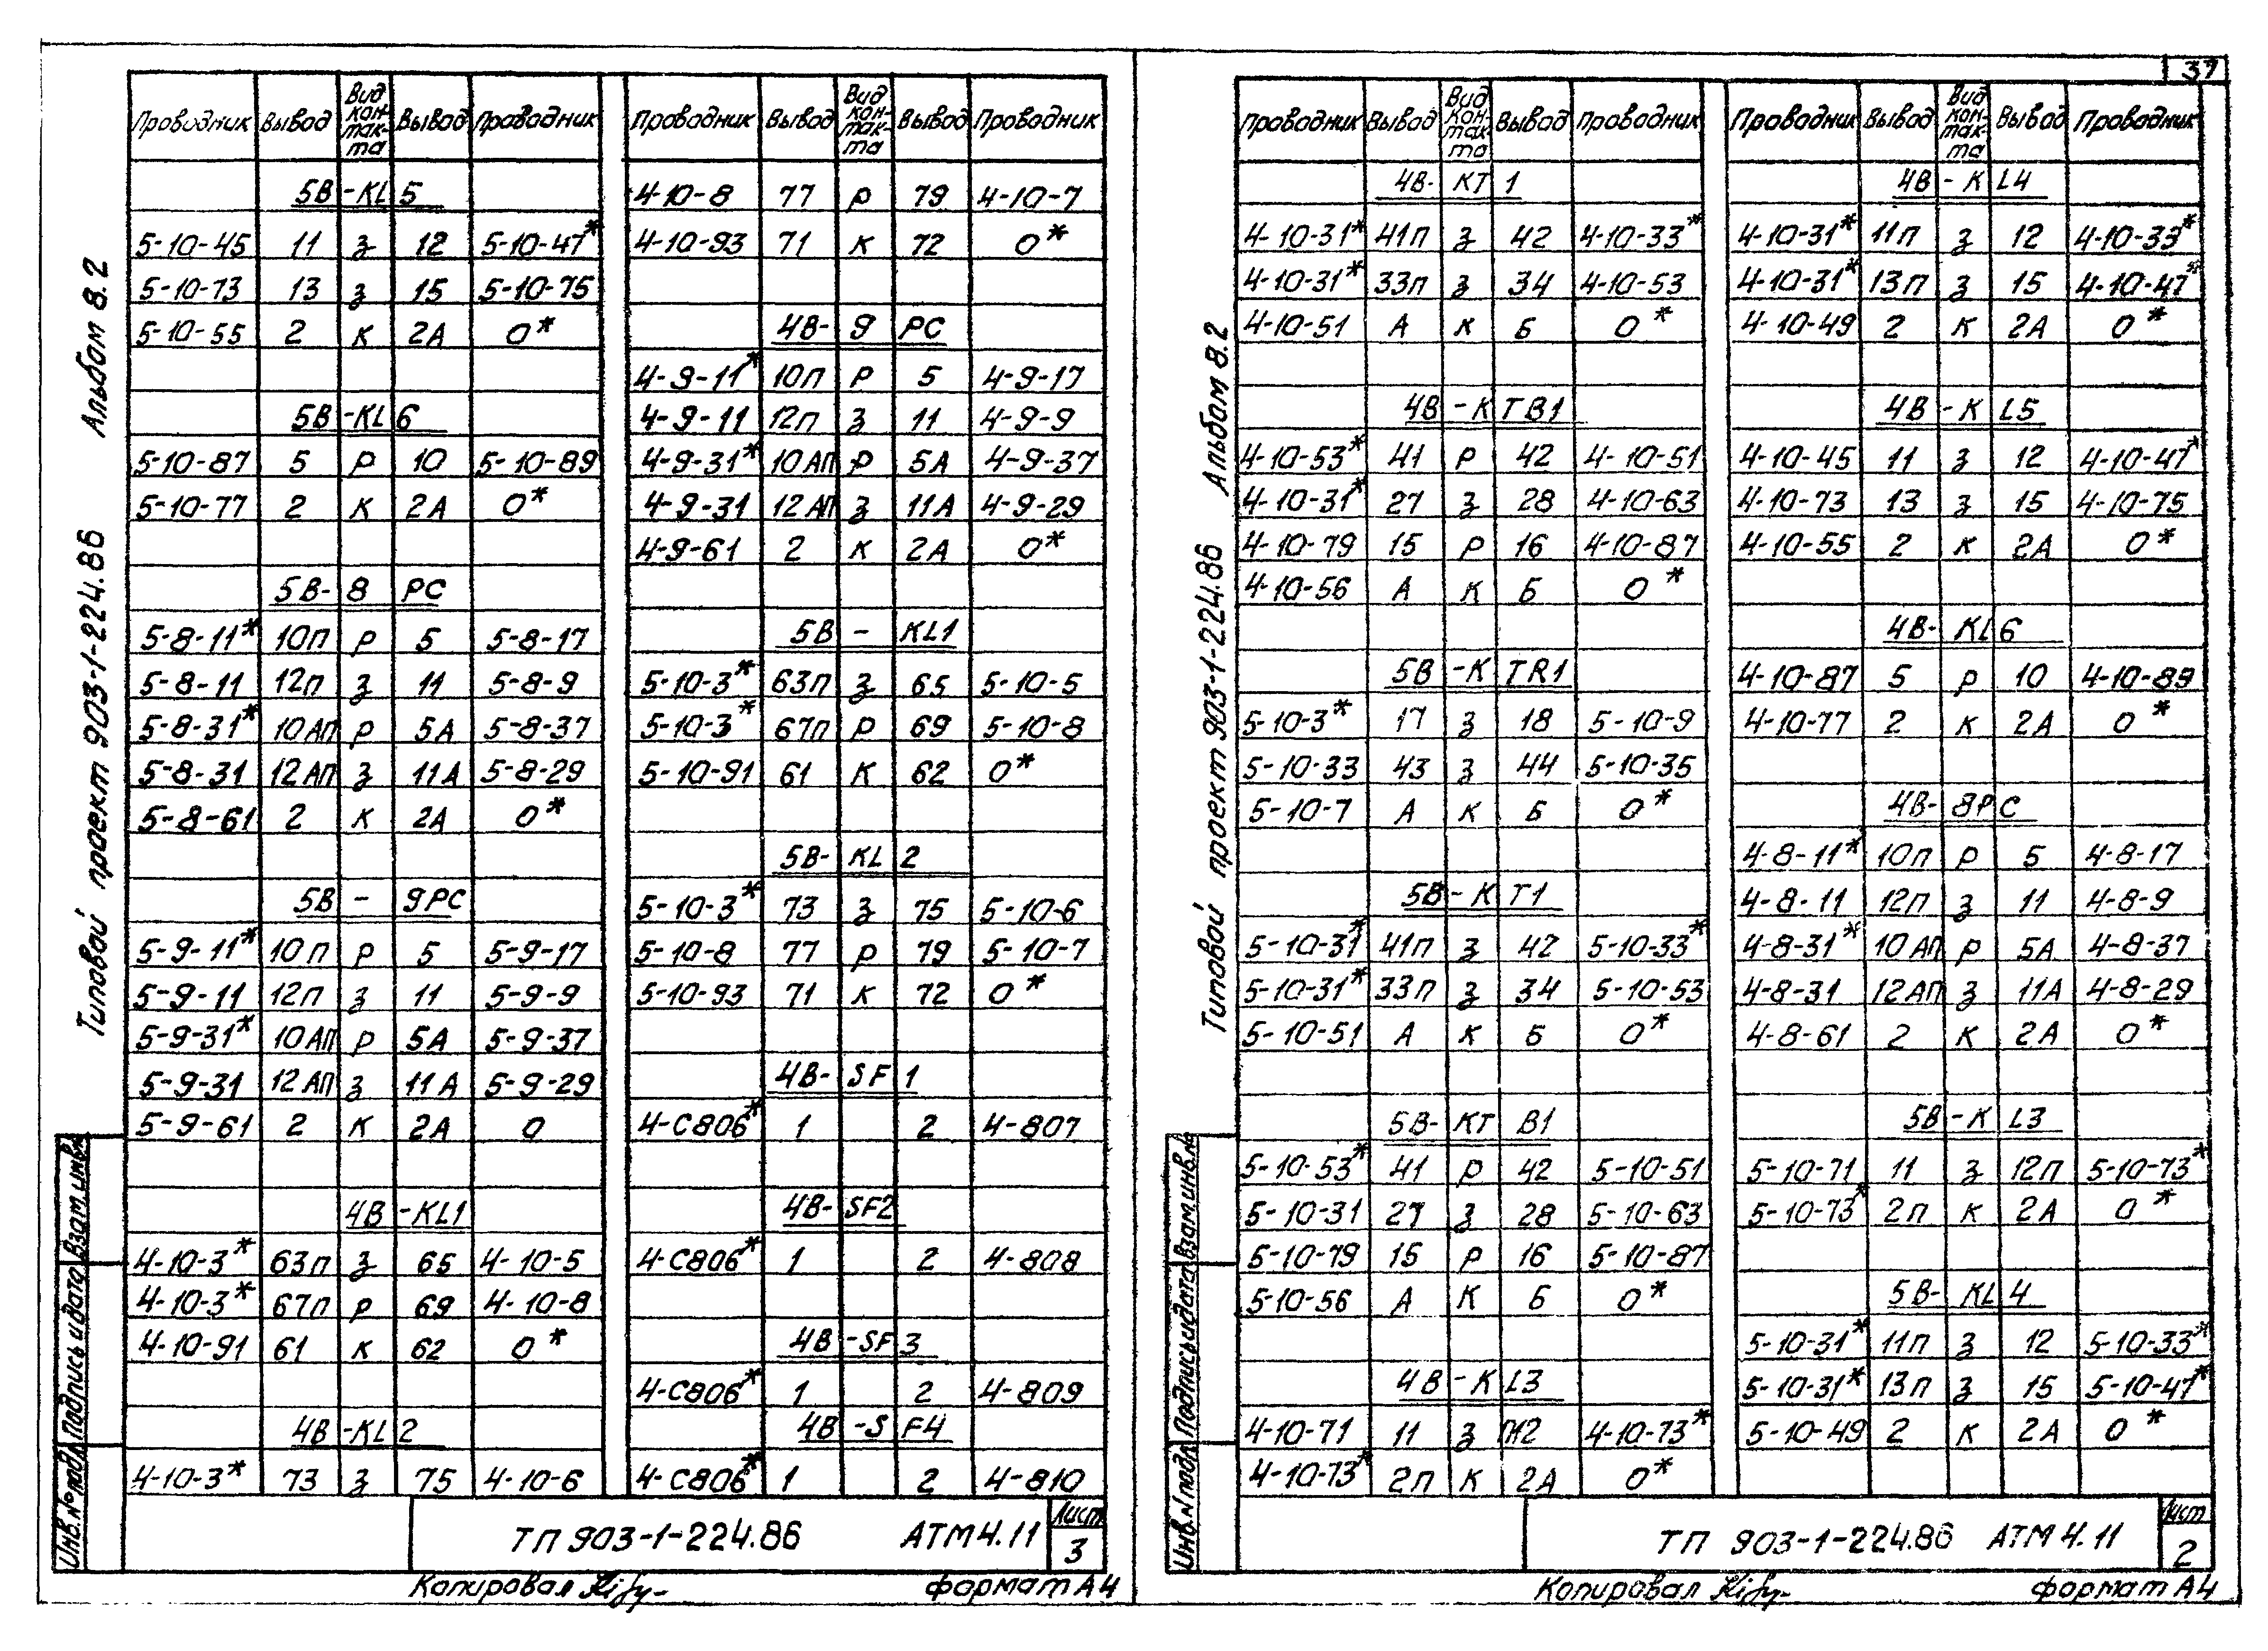 37
Альбом 8.2
Типовой проект 903-1-224.86
Проводник Вывод Вид кон-так-та Вывод Проводник
5В-KL5
5-10-45 11 з 12 5-10-47*
5-10-73 13 з 15 5-10-75
5-10-55 2 к 2А 0*
5В-KL6
5-10-87 5 р 10 5-10-89
5-10-77 2 к 2А 0*
5В-8РС
5-8-11* 10п р 5 5-8-17
5-8-11 12п з 11 5-8-9
5-8-31* 10АП р 5А 5-8-37
5-8-31 12АП з 11А 5-8-29
5-8-61 2 к 2А 0*
5В-9РС
5-9-11* 10п р 5 5-9-17
5-9-11 12п з 11 5-9-9
5-9-31* 10АП р 5А 5-9-37
5-9-31 12АП з 11А 5-9-29
5-9-61 2 к 2А 0
4В-KL1
4-10-3* 63п з 65 4-10-5
4-10-3* 67п р 69 4-10-8
4-10-91 61 к 62 0*
4В-KL2
4-10-3* 73 з 75 4-10-6
Проводник Вывод Вид кон-так-та Вывод Проводник
4-10-8 77 р 79 4-10-7
4-10-93 71 к 72 0*
4В-9РС
4-9-11* 10п р 5 4-9-17
4-9-11 12п з 11 4-9-9
4-9-31* 10АП р 5А 4-9-37
4-9-31 12АП з 11А 4-9-29
4-9-61 2 к 2А 0*
5В-KL1
5-10-3* 63п з 65 5-10-5
5-10-3* 67п р 69 5-10-8
5-10-91 61 к 62 0*
5В-KL2
5-10-3* 73 з 75 5-10-6
5-10-8 77 р 79 5-10-7
5-10-93 71 к 72 0*
4В-SF1
4-С806* 1 2 4-807
4В-SF2
4-С806* 1 2 4-808
4В-SF3
4-С806* 1 2 4-809
4В-SF4
4-С806* 1 2 4-810
Инв.№подл. Подпись и дата Взам.инв.№
ТП 903-1-224.86 АТМ4.11
Лист
3
Копировал
формат А4
Альбом 8.2
Типовой проект 903-1-224.86
Проводник Вывод Вид кон-так-та Вывод Проводник
4В-КТ1
4-10-31* 41п з 42 4-10-33*
4-10-31* 33п з 34 4-10-53
4-10-51 А к Б 0*
4В-КТВ1
4-10-53* 41 р 42 4-10-51
4-10-31* 27 з 28 4-10-63
4-10-79 15 р 16 4-10-87
4-10-56 А к Б 0*
5В-KTR1
5-10-3* 17 з 18 5-10-9
5-10-33 43 з 44 5-10-35
5-10-7 А к Б 0*
5В-КТ1
5-10-31* 41п з 42 5-10-33*
5-10-31* 33п з 34 5-10-53
5-10-51 А к Б 0*
5В-КТВ1
5-10-53* 41 р 42 5-10-51
5-10-31 27 з 28 5-10-63
5-10-79 15 р 16 5-10-87
5-10-56 А к Б 0*
4В-KL3
4-10-71 11 з П12 4-10-73*
4-10-73* 2п к 2А 0*
Проводник Вывод Вид кон-так-та Вывод Проводник
4В-KL4
4-10-31* 11п з 12 4-10-33*
4-10-31* 13п з 15 4-10-47*
4-10-49 2 к 2А 0*
4В-KL5
4-10-45 11 з 12 4-10-47*
4-10-73 13 з 15 4-10-75
4-10-55 2 к 2А 0*
4В-KL6
4-10-87 5 р 10 4-10-89
4-10-77 2 к 2А 0*
4В-8РС
4-8-11* 10п р 5 4-8-17
4-8-11 12п з 11 4-8-9
4-8-31* 10АП р 5А 4-8-37
4-8-31 12АП з 11А 4-8-29
4-8-61 2 к 2А 0*
5В-KL3
5-10-71 11 з 12п 5-10-73*
5-10-73* 2п к 2А 0*
5В-KL4
5-10-31* 11п з 12 5-10-33*
5-10-31* 13п з 15 5-10-47*
5-10-49 2 к 2А 0*
Инв.№подл. Подпись и дата Взам.инв.№
ТП 903-1-224.86 АТМ4.11
Лист
2
Копировал
формат А4